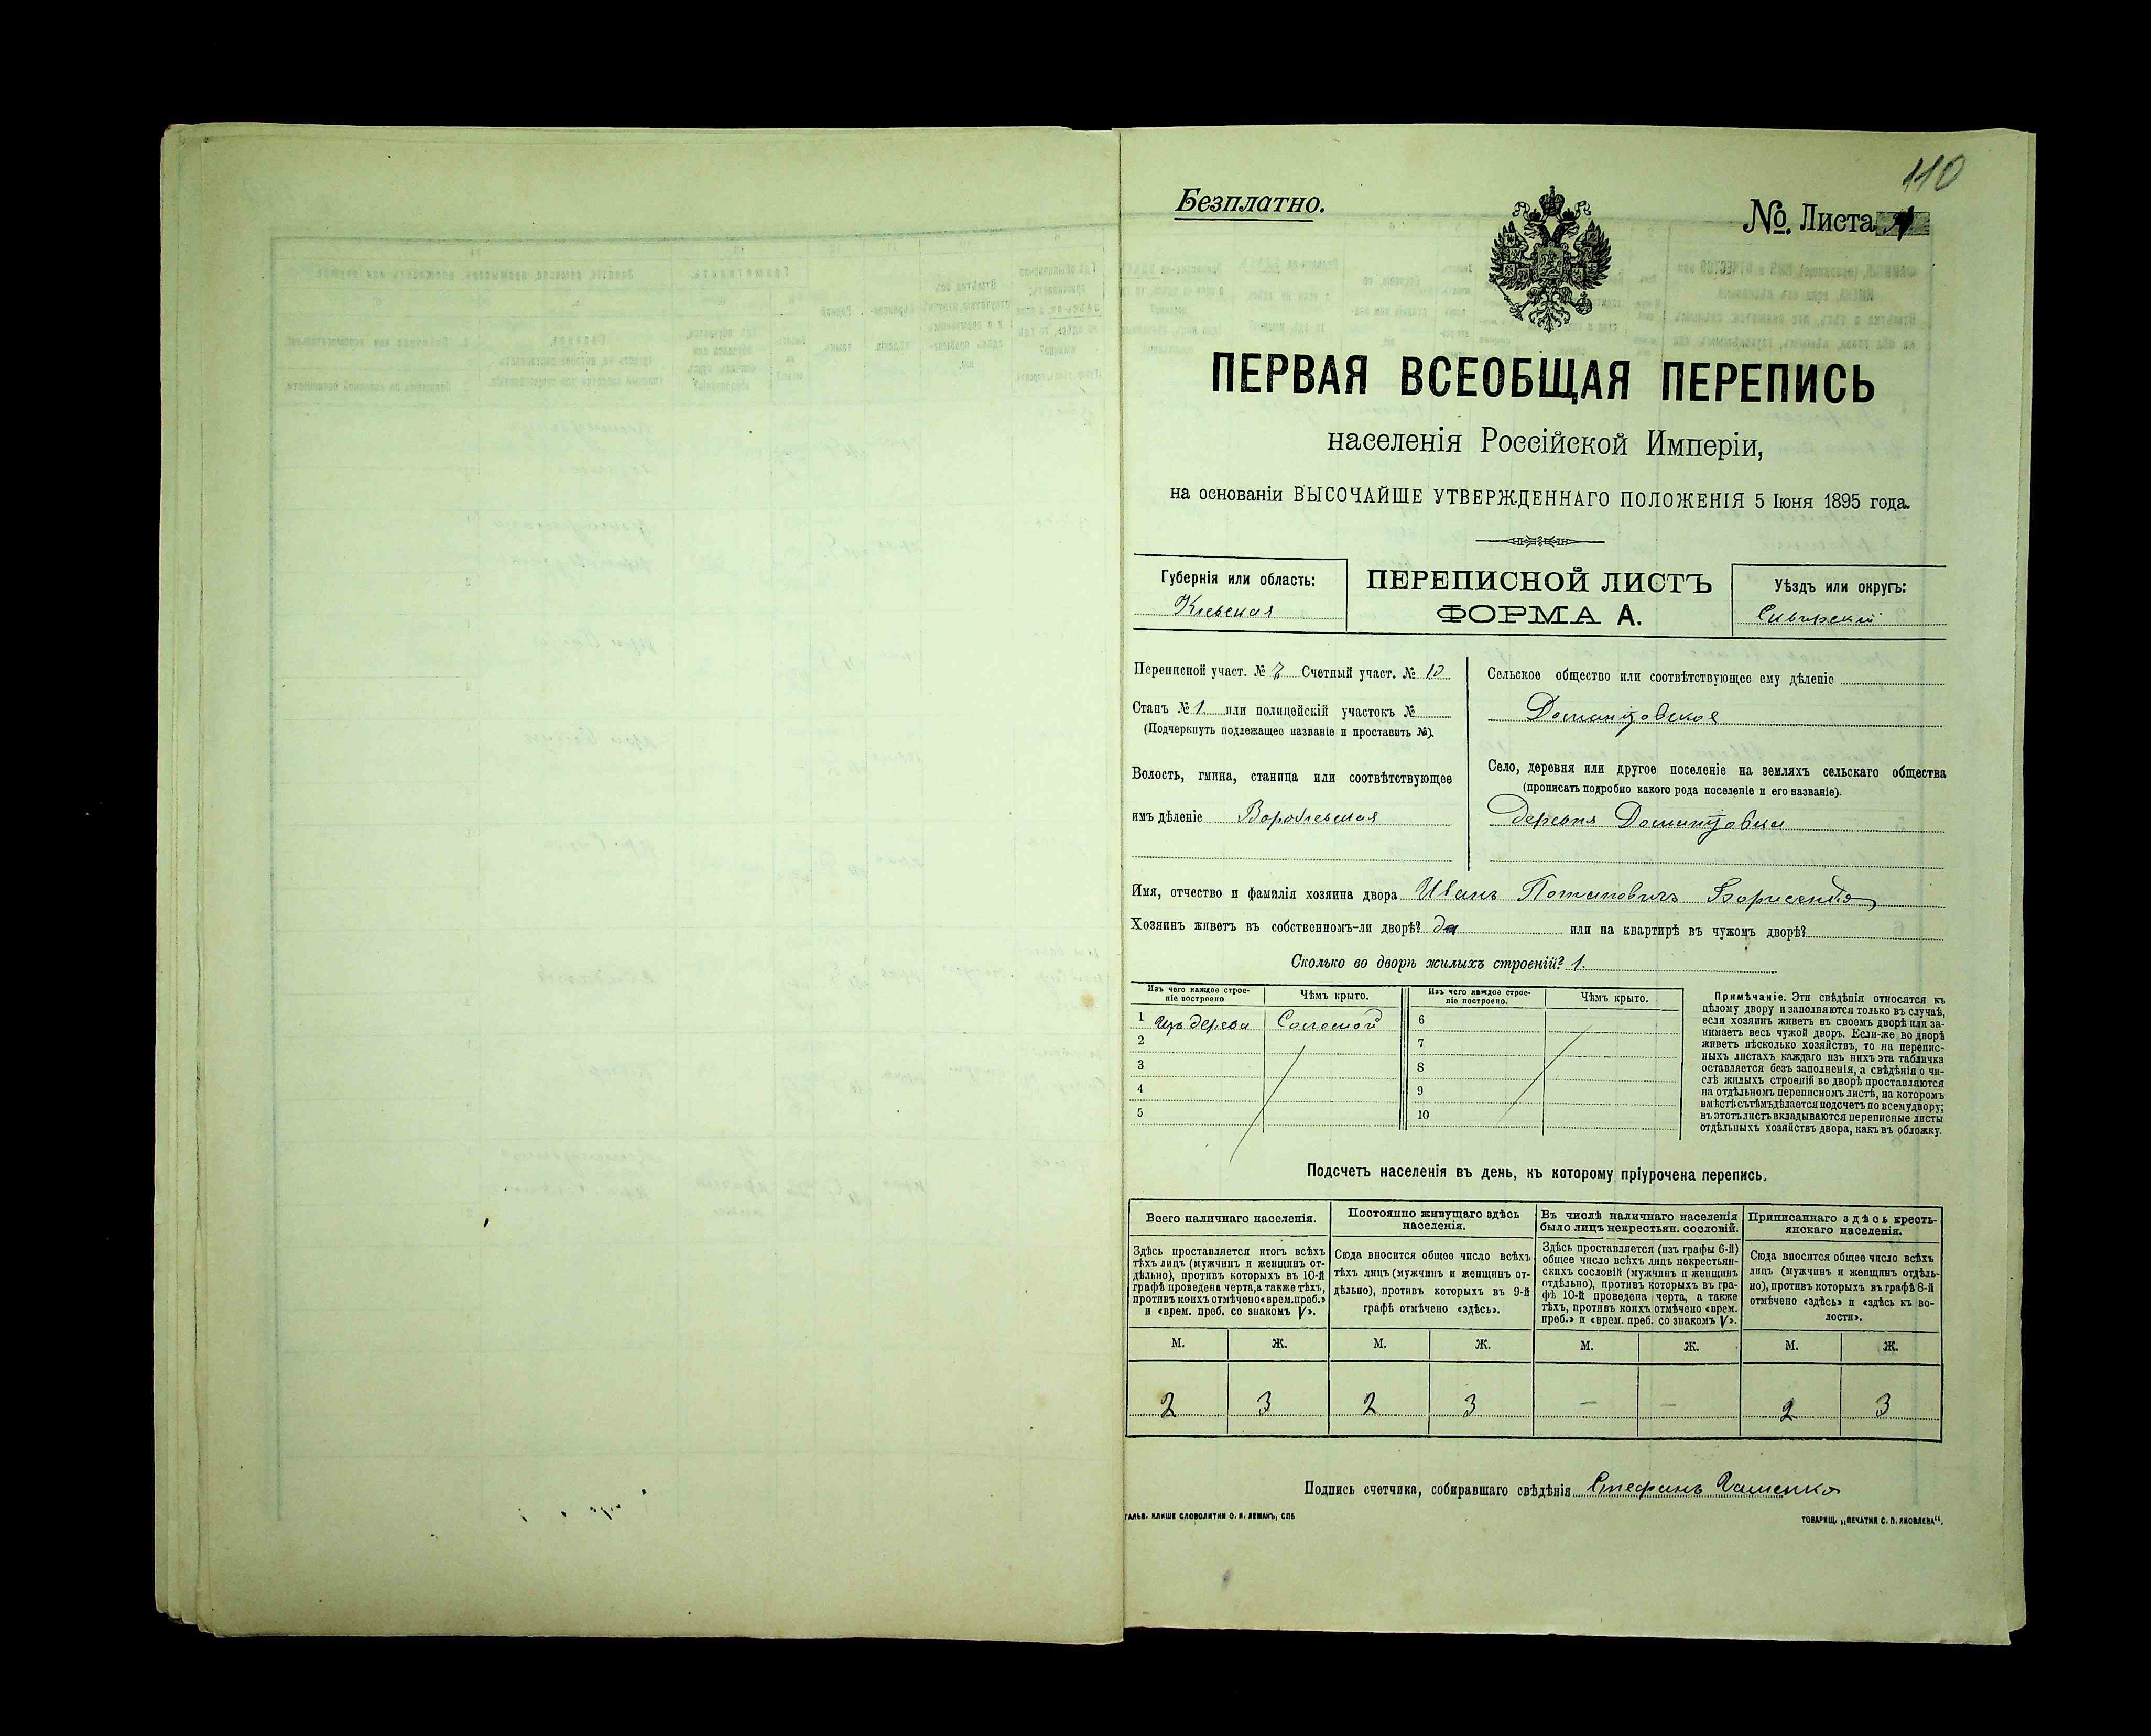 110
Безплатно.
№. Листа
ПЕРВАЯ ВСЕОБЩАЯ ПЕРЕПИСЬ
населенія Россійской Имперіи,
на основаніи ВЫСОЧАЙШЕ УТВЕРЖДЕННАГО ПОЛОЖЕНІЯ 5 Іюня 1895 года.
Губернія или область:
Кіевская
ПЕРЕПИСНОЙ ЛИСТЪ
ФОРМА А.
Уѣздъ или округъ:
Сквирскій
Переписной участ. № 7 Счетный участ. № 10
Станъ № 1 или полицейскій участокъ №
(Подчеркнуть подлежащее названіе и проставить №).
Волость, гмина, станица или соотвѣтствующее
имъ дѣленіе
Сельское общество или соотвѣтствующее ему дѣленіе
Домантовское
Село, деревня или другое поселеніе на земляхъ сельскаго общества
(прописать подробно какого рода поселеніе и его названіе).
деревня Домантовка
Имя, отчество и фамилія хозяина двора Иванъ Потаповичъ Борисенко
Хозяинъ живетъ въ собственномъ-ли дворѣ? да или на квартирѣ въ чужомъ дворѣ?
Сколько во дворѣ жилыхъ строеній? 1.
Изъ чего каждое строе-
ніе построено
Чѣмъ крыто.
Изъ чего каждое строе-
ніе построено.
Чѣмъ крыто.
1 Изъ дерева Соломой
2
3
4
5
6
7
8
9
10
Примѣчаніе. Эти свѣдѣнія относятся къ
цѣлому двору и заполняются только въ случаѣ,
если хозяинъ живетъ въ своемъ дворѣ или за-
нимаетъ весь чужой дворъ. Если-же во дворѣ
живетъ нѣсколько хозяйствъ, то на перепис-
ныхъ листахъ каждаго изъ нихъ эта табличка
оставляется безъ заполненія, а свѣдѣнія о чи-
слѣ жилыхъ строеній во дворѣ проставляются
на отдѣльномъ переписномъ листѣ, на которомъ
вмѣстѣ съ тѣмъ дѣлается подсчетъ по всему двору;
въ этотъ листъ вкладываются переписные листы
отдѣльныхъ хозяйствъ двора, какъ въ обложку.
Подсчетъ населенія въ день, къ которому пріурочена перепись.
Всего наличнаго населенія.
Постоянно живущаго здѣсь
населенія.
Въ числѣ наличнаго населенія
было лицъ некрестьян. сословій.
Приписаннаго здѣсь кресть-
янскаго населенія.
Здѣсь проставляется итогъ всѣхъ
тѣхъ лицъ (мужчинъ и женщинъ от-
дѣльно), противъ которыхъ въ 10-й
графѣ проведена черта, а также тѣхъ,
противъ коихъ отмѣчено «врем. преб.»
и «врем. преб. со знакомъ V».
Сюда вносится общее число всѣхъ
тѣхъ лицъ (мужчинъ и женщинъ от-
дѣльно), противъ которыхъ въ 9-й
графѣ отмѣчено «здѣсь».
Здѣсь проставляется (изъ графы 6-й)
общее число всѣхъ лицъ некрестьян-
скихъ сословій (мужчинъ и женщинъ
отдѣльно), противъ которыхъ въ гра-
фѣ 10-й проведена черта, а также
тѣхъ, противъ коихъ отмѣчено «врем.
преб.» и «врем. преб. со знакомъ V».
Сюда вносится общее число всѣхъ
лицъ (мужчинъ и женщинъ отдѣль-
но), противъ которыхъ въ графѣ 8-й
отмѣчено «здѣсь» и «здѣсь къ во-
лости».
М. Ж. М. Ж. М. Ж. М. Ж.
2 3 2 3 — — 2 3
Подпись счетчика, собиравшаго свѣдѣнія Стефанъ
ГАЛЬВ. КЛИШЕ СЛОВОЛИТНИ О. И. ЛЕМАНЪ, СПБ
ТОВАРИЩ. „ПЕЧАТНЯ С. П. ЯКОВЛЕВА",